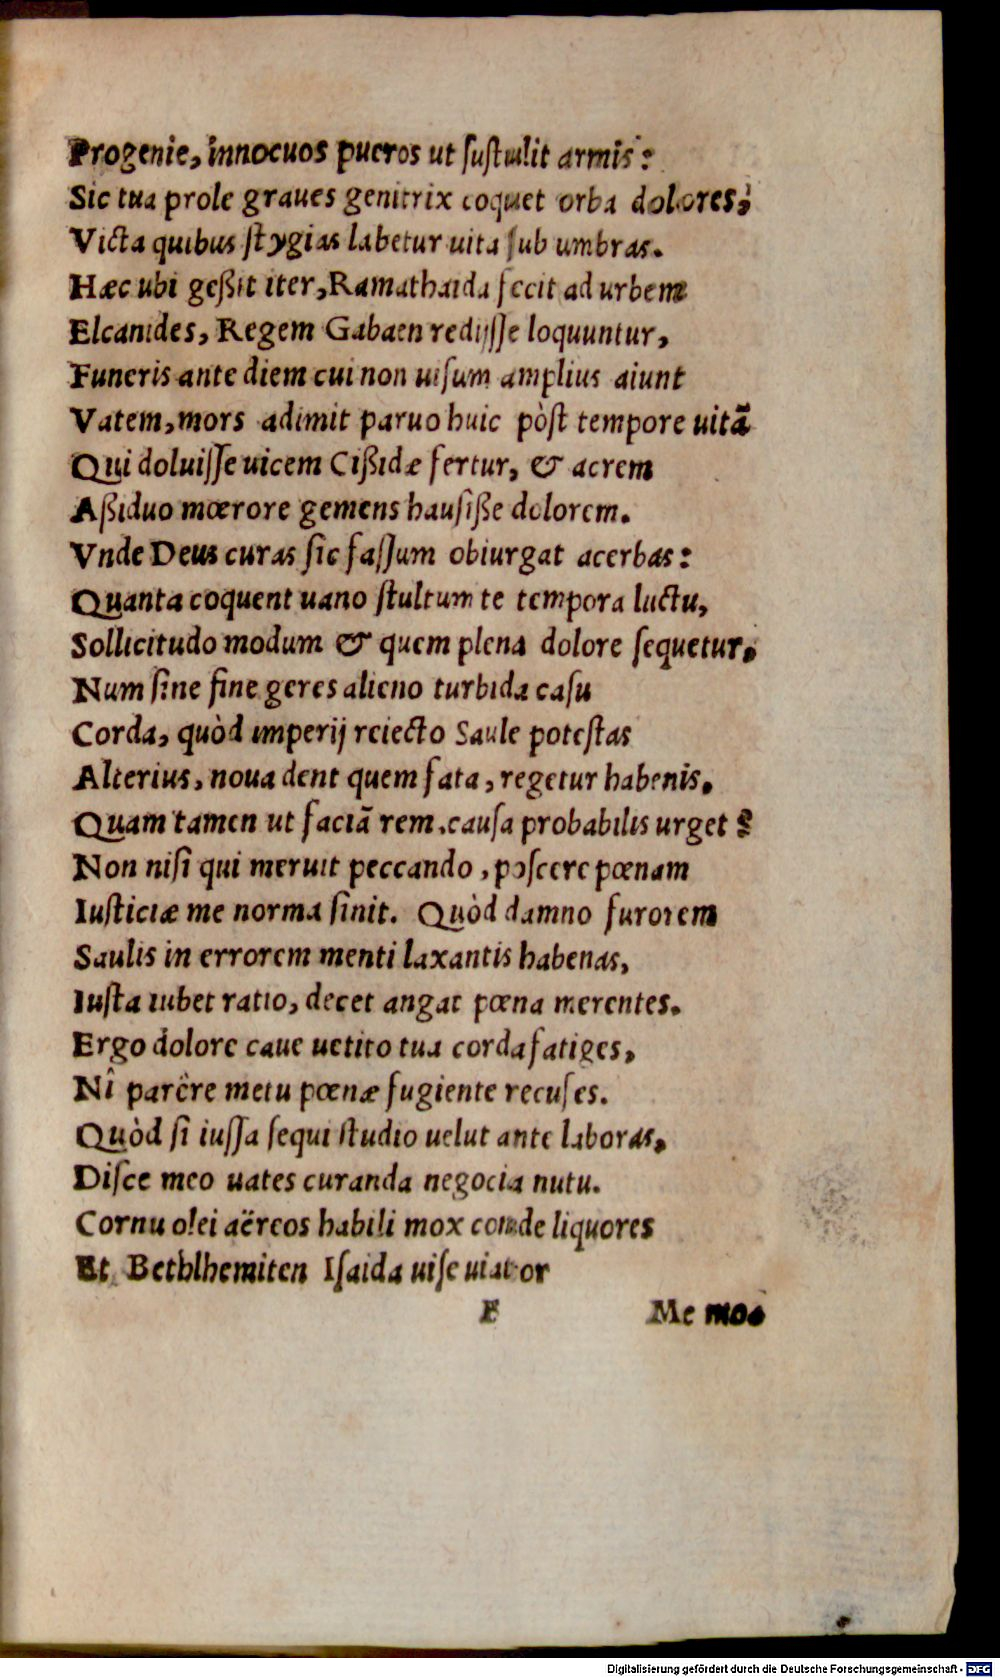 Progenie, innocuos pueros ut ſuſtulit armis:
Sic tua prole graues genitrix coquet orba dolores,
Victa quibus ſtygias labetur uita ſub umbras.
Hæc ubi geßit iter, Ramathaida fecit ad urbem
Elcanides, Regem Gabaen redijſſe loquuntur,
Funeris ante diem cui non uiſum amplius aiunt
Vatem, mors adimit paruo huic pòſt tempore uitā
Qui doluiſſe uicem Cißidæ fertur, & acrem
Aßiduo mœrore gemens hauſiße dolorem.
Vnde Deus curas ſic faſſum obiurgat acerbas:
Quanta coquent uano ſtultum te tempora luctu,
Sollicitudo modum & quem plena dolore ſequetur,
Num ſine fine geres alieno turbida caſu
Corda, quòd imperij reiecto Saule poteſtas
Alterius, noua dent quem fata, regetur habenis.
Quam tamen ut faciā rem, cauſa probabilis urget?
Non niſi qui meruit peccando, poſcere pœnam
Iuſticiæ me norma ſinit. Quòd damno furorem
Saulis in errorem menti laxantis habenas,
Iuſta iubet ratio, decet angat pœna merentes.
Ergo dolore caue uetito tua corda fatiges,
Nî parēre metu pœnæ fugiente recuſes.
Quòd ſi iuſſa ſequi ſtudio uelut ante laboras,
Diſce meo uates curanda negocia nutu.
Cornu olei aëreos habili mox conde liquores
Et Bethlhemiten Iſaida uiſe uiator
F Me mo-
Digitalisierung gefördert durch die Deutsche Forschungsgemeinschaft - DFG